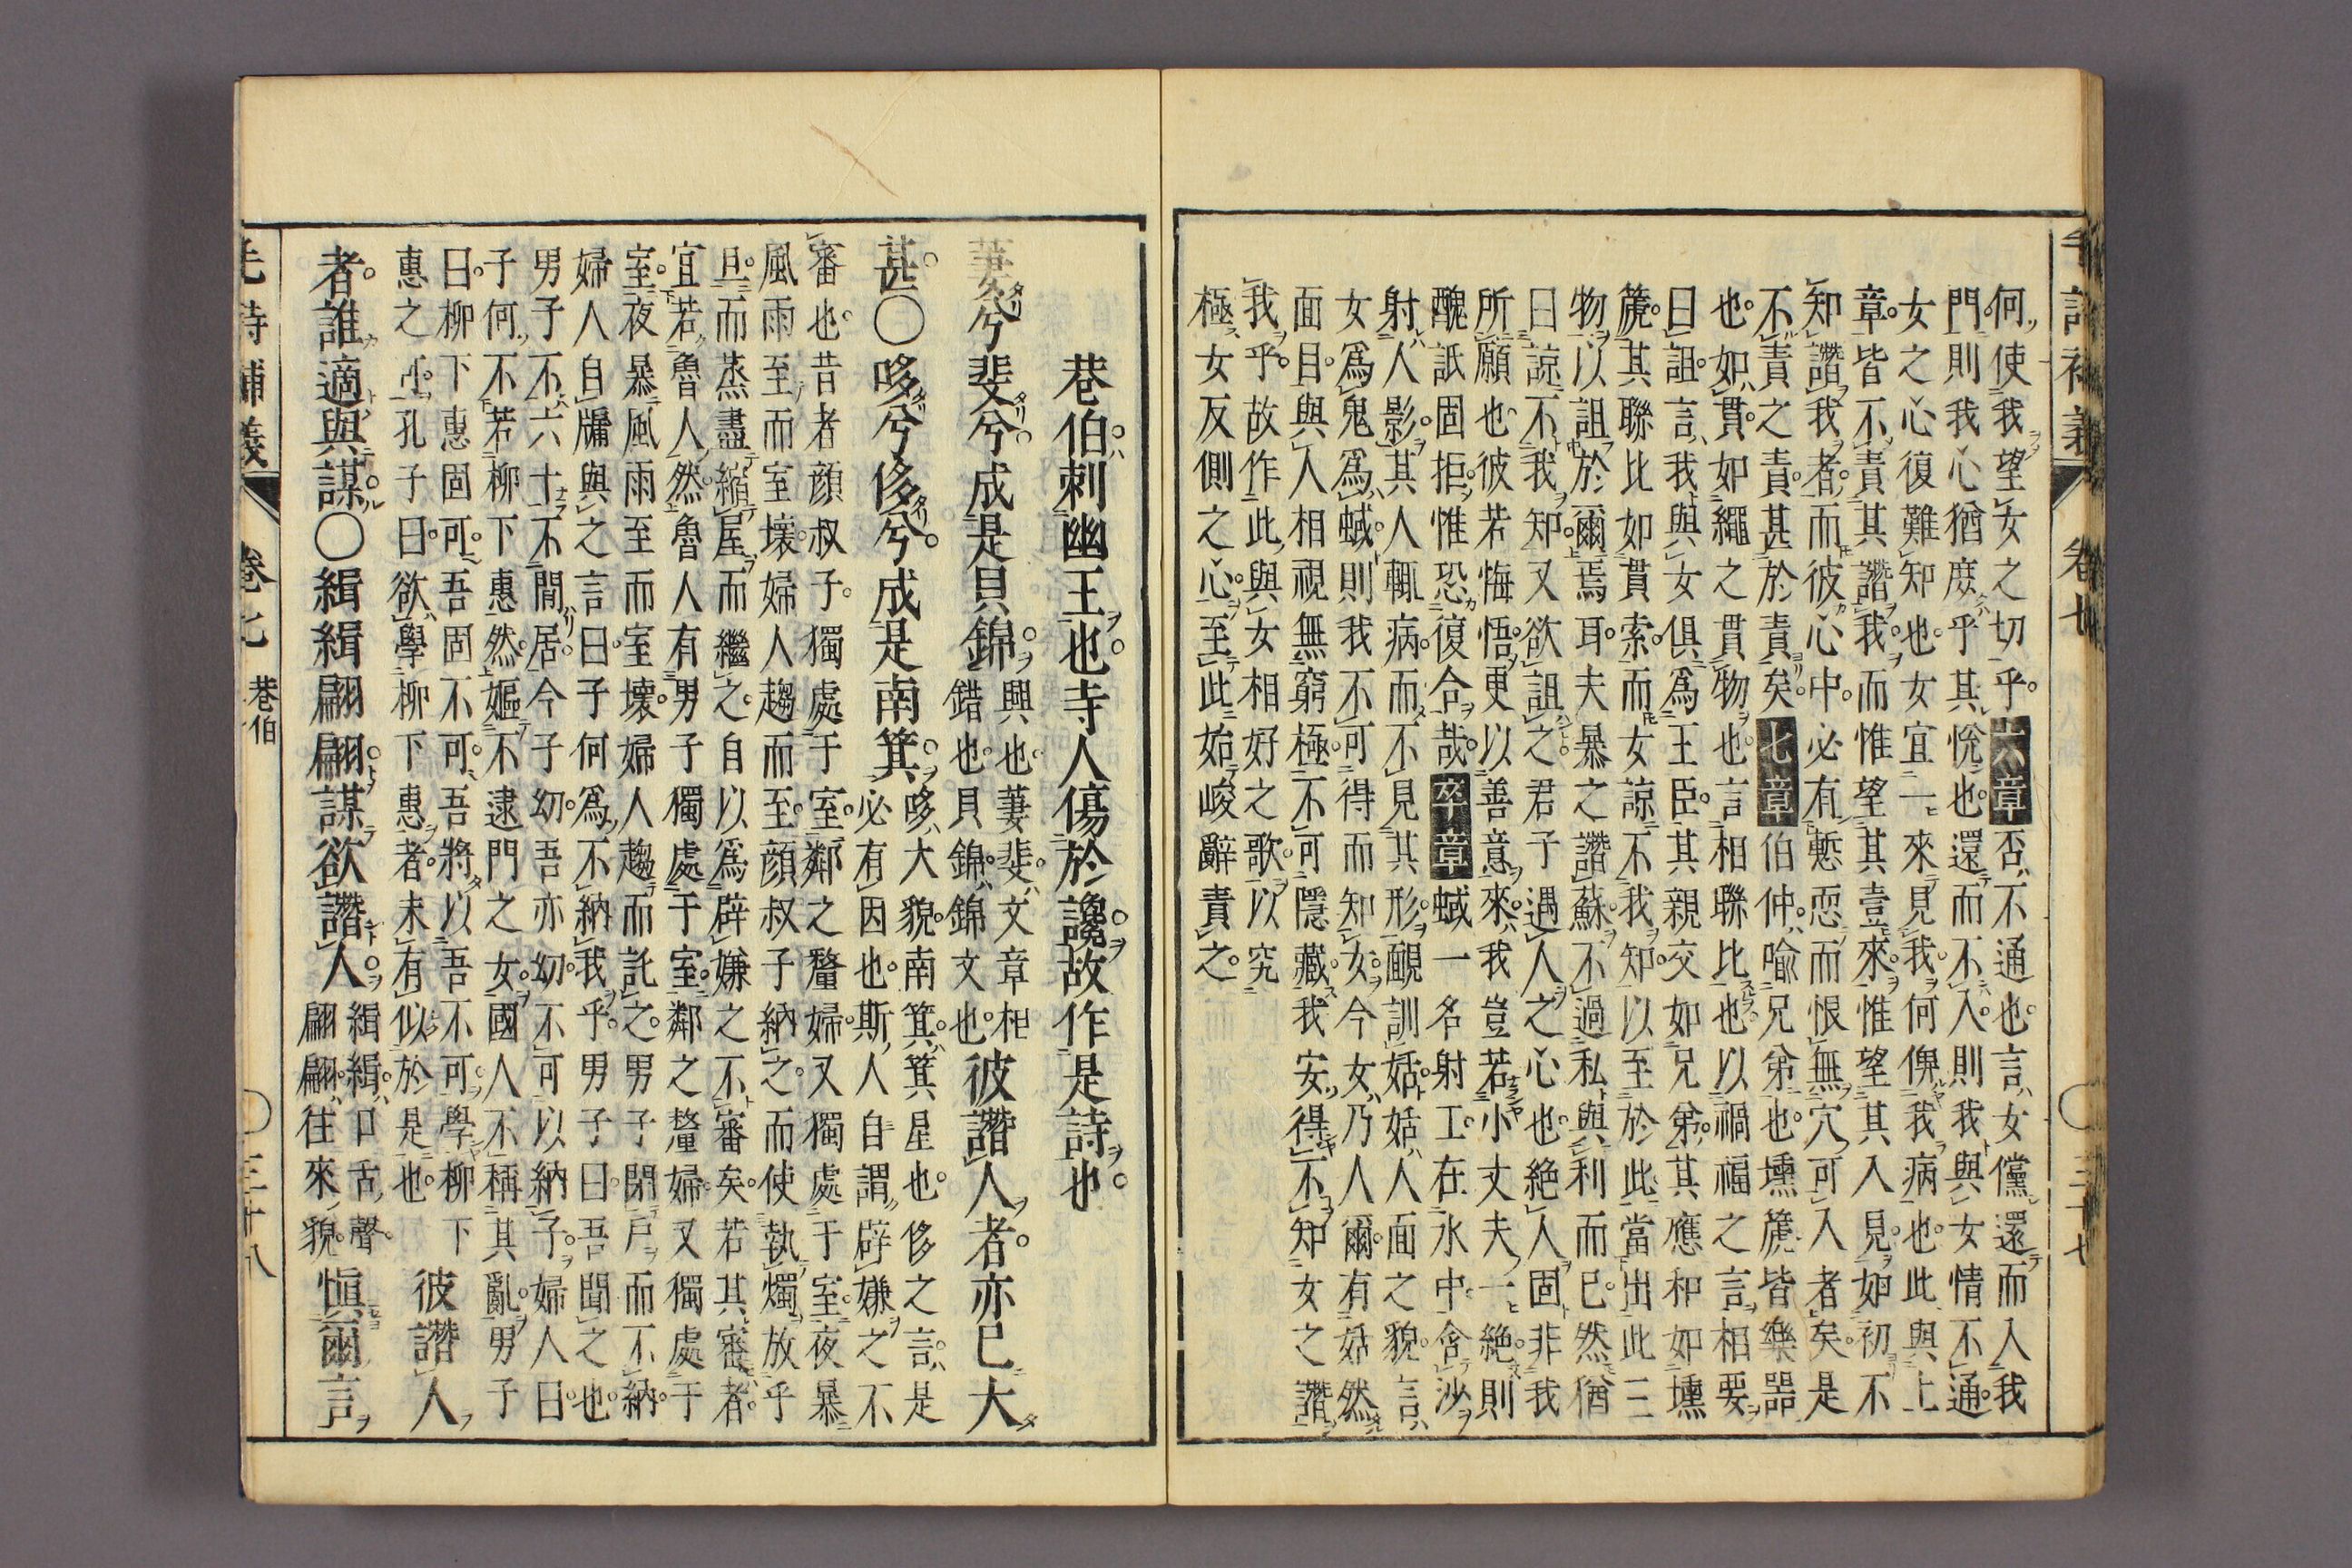 何使我望女之切乎六章否不通也言女儻還而入我
門則我心猶庶乎其悅也還而不入則我與女情不通
女之心復難知也女宜一來見我何俾我病也此與上
章皆不責其譖我而惟望其壹來惟望其入見如初不
知譖我者而彼心中必有慙恧而恨無穴可入者矣是
不責之責甚於責矣七章伯仲喩兄弟也壎篪皆樂噐
也如貫如繩之貫物也言相聯比也以禍福之言相要
曰詛言我與女俱爲王臣其親交如兄弟其應和如壎
篪其聯比如貫索而女諒不我知以至於此當出此三
物以詛於爾焉耳夫暴之譖蘇不過私與利而已然猶
曰諒不我知又欲詛之君子遇人之心也絶人固非我
所願也彼若悔悟更以善意來我豈若小丈夫一絶則
醜詆固拒惟恐復合哉卒章蜮一名射工在水中含沙
射人影其人輒病而不見其形靦訓姡姡人面之貌言
女爲鬼爲蜮則我不可得而知女今女乃人爾有姡然
面目與人相視無窮極不可隱藏我安得不知女之譖
我乎故作此與女相好之歌以究
極女反側之心至此始峻辭責之
巷伯刺幽王也寺人傷於讒故作是詩也
萋兮斐兮成是貝錦
興也萋斐文章相
錯也貝錦錦文也
彼譖人者亦已大
甚〇哆兮侈兮成是南箕
哆大貌南箕箕星也侈之言是
必有因也斯人自謂辟嫌之不
審也昔者顏叔子獨處于室鄰之釐婦又獨處于室夜暴
風雨至而室壞婦人趨而至顏叔子納之而使執燭放乎
旦而蒸盡縮屋而繼之自以爲辟嫌之不審矣若其審者
宜若魯人然魯人有男子獨處于室鄰之釐婦又獨處于
室夜暴風雨至而室壞婦人趨而託之男子閉戶而不納
婦人自牖與之言曰子何爲不納我乎男子曰吾聞之也
男子不六十不閒居今子幼吾亦幼不可以納子婦人曰
子何不若柳下惠然嫗不逮門之女國人不稱其亂男子
曰柳下惠固可吾固不可吾將以吾不可學柳下
惠之可孔子曰欲學柳下惠者未有似於是也
彼譖人
者誰適與謀〇緝緝翩翩謀欲譖人
緝緝口舌聲
翩翩往來貌
愼爾言
毛詩補義 卷七 巷伯 〇三十八